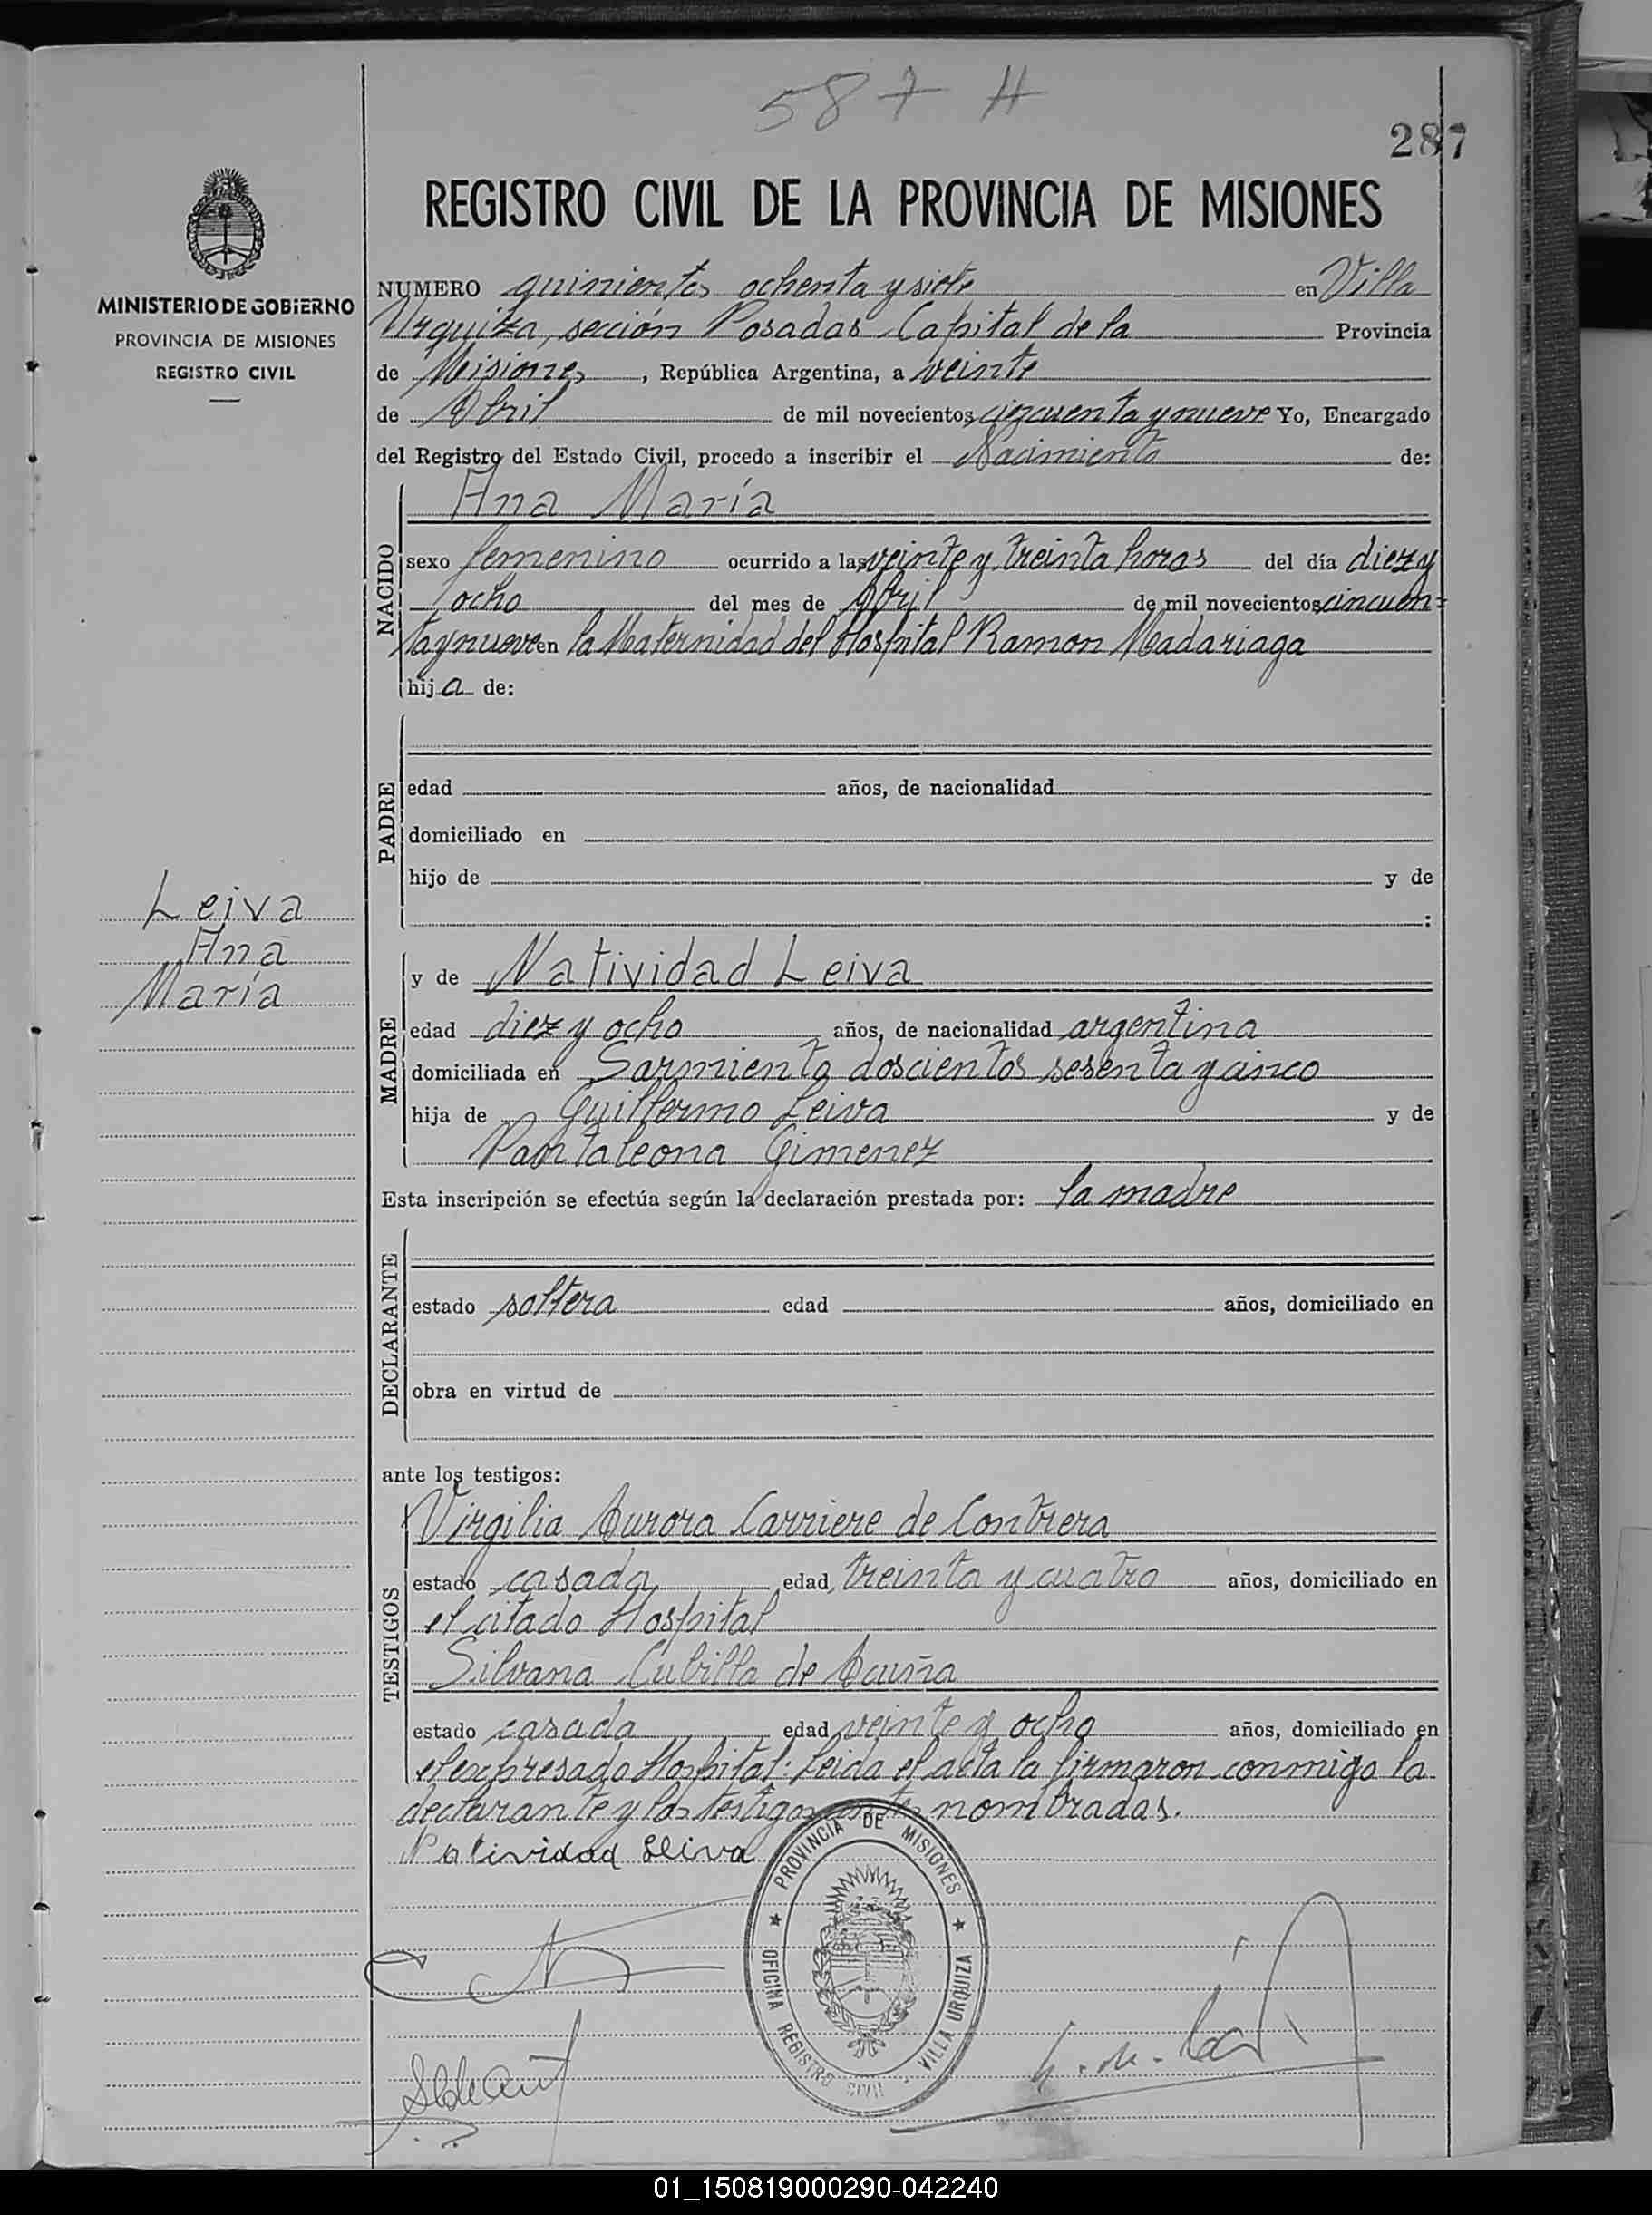 587 H
287
REGISTRO CIVIL DE LA PROVINCIA DE MISIONES
MINISTERIO DE GOBIERNO
PROVINCIA DE MISIONES
REGISTRO CIVIL
NUMERO quinientos ochenta y siete en Villa
Urquiza, sección Posadas Capital de la Provincia
de Misiones, República Argentina, a veinte
de Abril de mil novecientos cincuenta y nueve Yo, Encargado
del Registro del Estado Civil, procedo a inscribir el Nacimiento de:
NACIDO
Ana María
sexo femenino ocurrido a las veinte y treinta horas del día diez y
ocho del mes de Abril de mil novecientos cincuen=
ta y nueve en la Maternidad del Hospital Ramon Madariaga
hija de:
PADRE
edad años, de nacionalidad
domiciliado en
hijo de y de
:
Leiva
Ana
María
MADRE
y de Natividad Leiva
edad diez y ocho años, de nacionalidad argentina
domiciliada en Sarmiento doscientos sesenta y cinco
hija de Guillermo Leiva y de
Pantaleona Gimenez
Esta inscripción se efectúa según la declaración prestada por: la madre
DECLARANTE
estado soltera edad años, domiciliado en
obra en virtud de
ante los testigos:
TESTIGOS
Virgilia Aurora Carriere de Contrera
estado casada edad treinta y cuatro años, domiciliado en
el citado Hospital
Silvana Cubilla de Acuña
estado casada edad veinte y ocho años, domiciliado en
el expresado Hospital: Leida el acta la firmaron conmigo la
declarante y los testigos nombradas.
Natividad Leiva
PROVINCIA DE MISIONES
OFICINA REGISTRO CIVIL VILLA URQUIZA
01_150819000290-042240